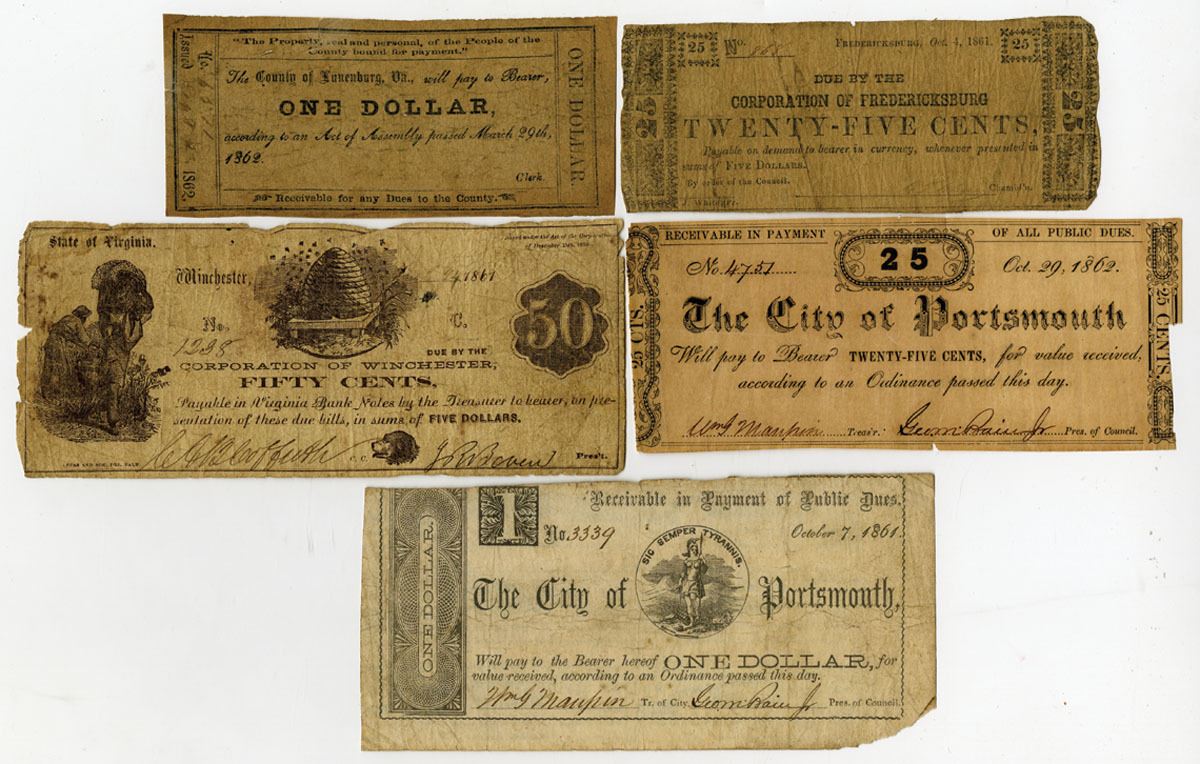 "The Property, real and personal, of the People of the
County bound for payment."
The County of Lunenburg, Va., will pay to Bearer,
ONE DOLLAR,
according to an Act of Assembly passed March 29th,
1862.
Clerk.
Receivable for any Dues to the County.
Issued 1862.
No.
ONE DOLLAR.
25 No. FREDERICKSBURG, Oct. 4, 1861. 25
DUE BY THE
CORPORATION OF FREDERICKSBURG
TWENTY-FIVE CENTS,
Payable on demand to bearer in currency, whenever presented in
sums of FIVE DOLLARS.
By order of the Council.
Chamb'n.
25
25
State of Virginia.
Winchester, 1861
No. C. 50
1298
DUE BY THE
CORPORATION OF WINCHESTER,
FIFTY CENTS,
Payable in Virginia Bank Notes by the Treasurer to bearer, on pre-
sentation of these due bills, in sums of FIVE DOLLARS.
C.C. Pres't.
RECEIVABLE IN PAYMENT 25 OF ALL PUBLIC DUES.
No. 4751 Oct. 29, 1862.
The City of Portsmouth
Will pay to Bearer TWENTY-FIVE CENTS, for value received,
according to an Ordinance passed this day.
Wm G Maupin Treas'r. Geo M Bain Jr Pres. of Council.
25 CTS.
25 CENTS.
1 Receivable in Payment of Public Dues.
No. 3339 October 7, 1861.
SIC SEMPER TYRANNIS.
The City of Portsmouth,
Will pay to the Bearer hereof ONE DOLLAR, for
value received, according to an Ordinance passed this day.
Wm G Maupin Tr. of City. Geo M Bain Jr Pres. of Council.
ONE DOLLAR.